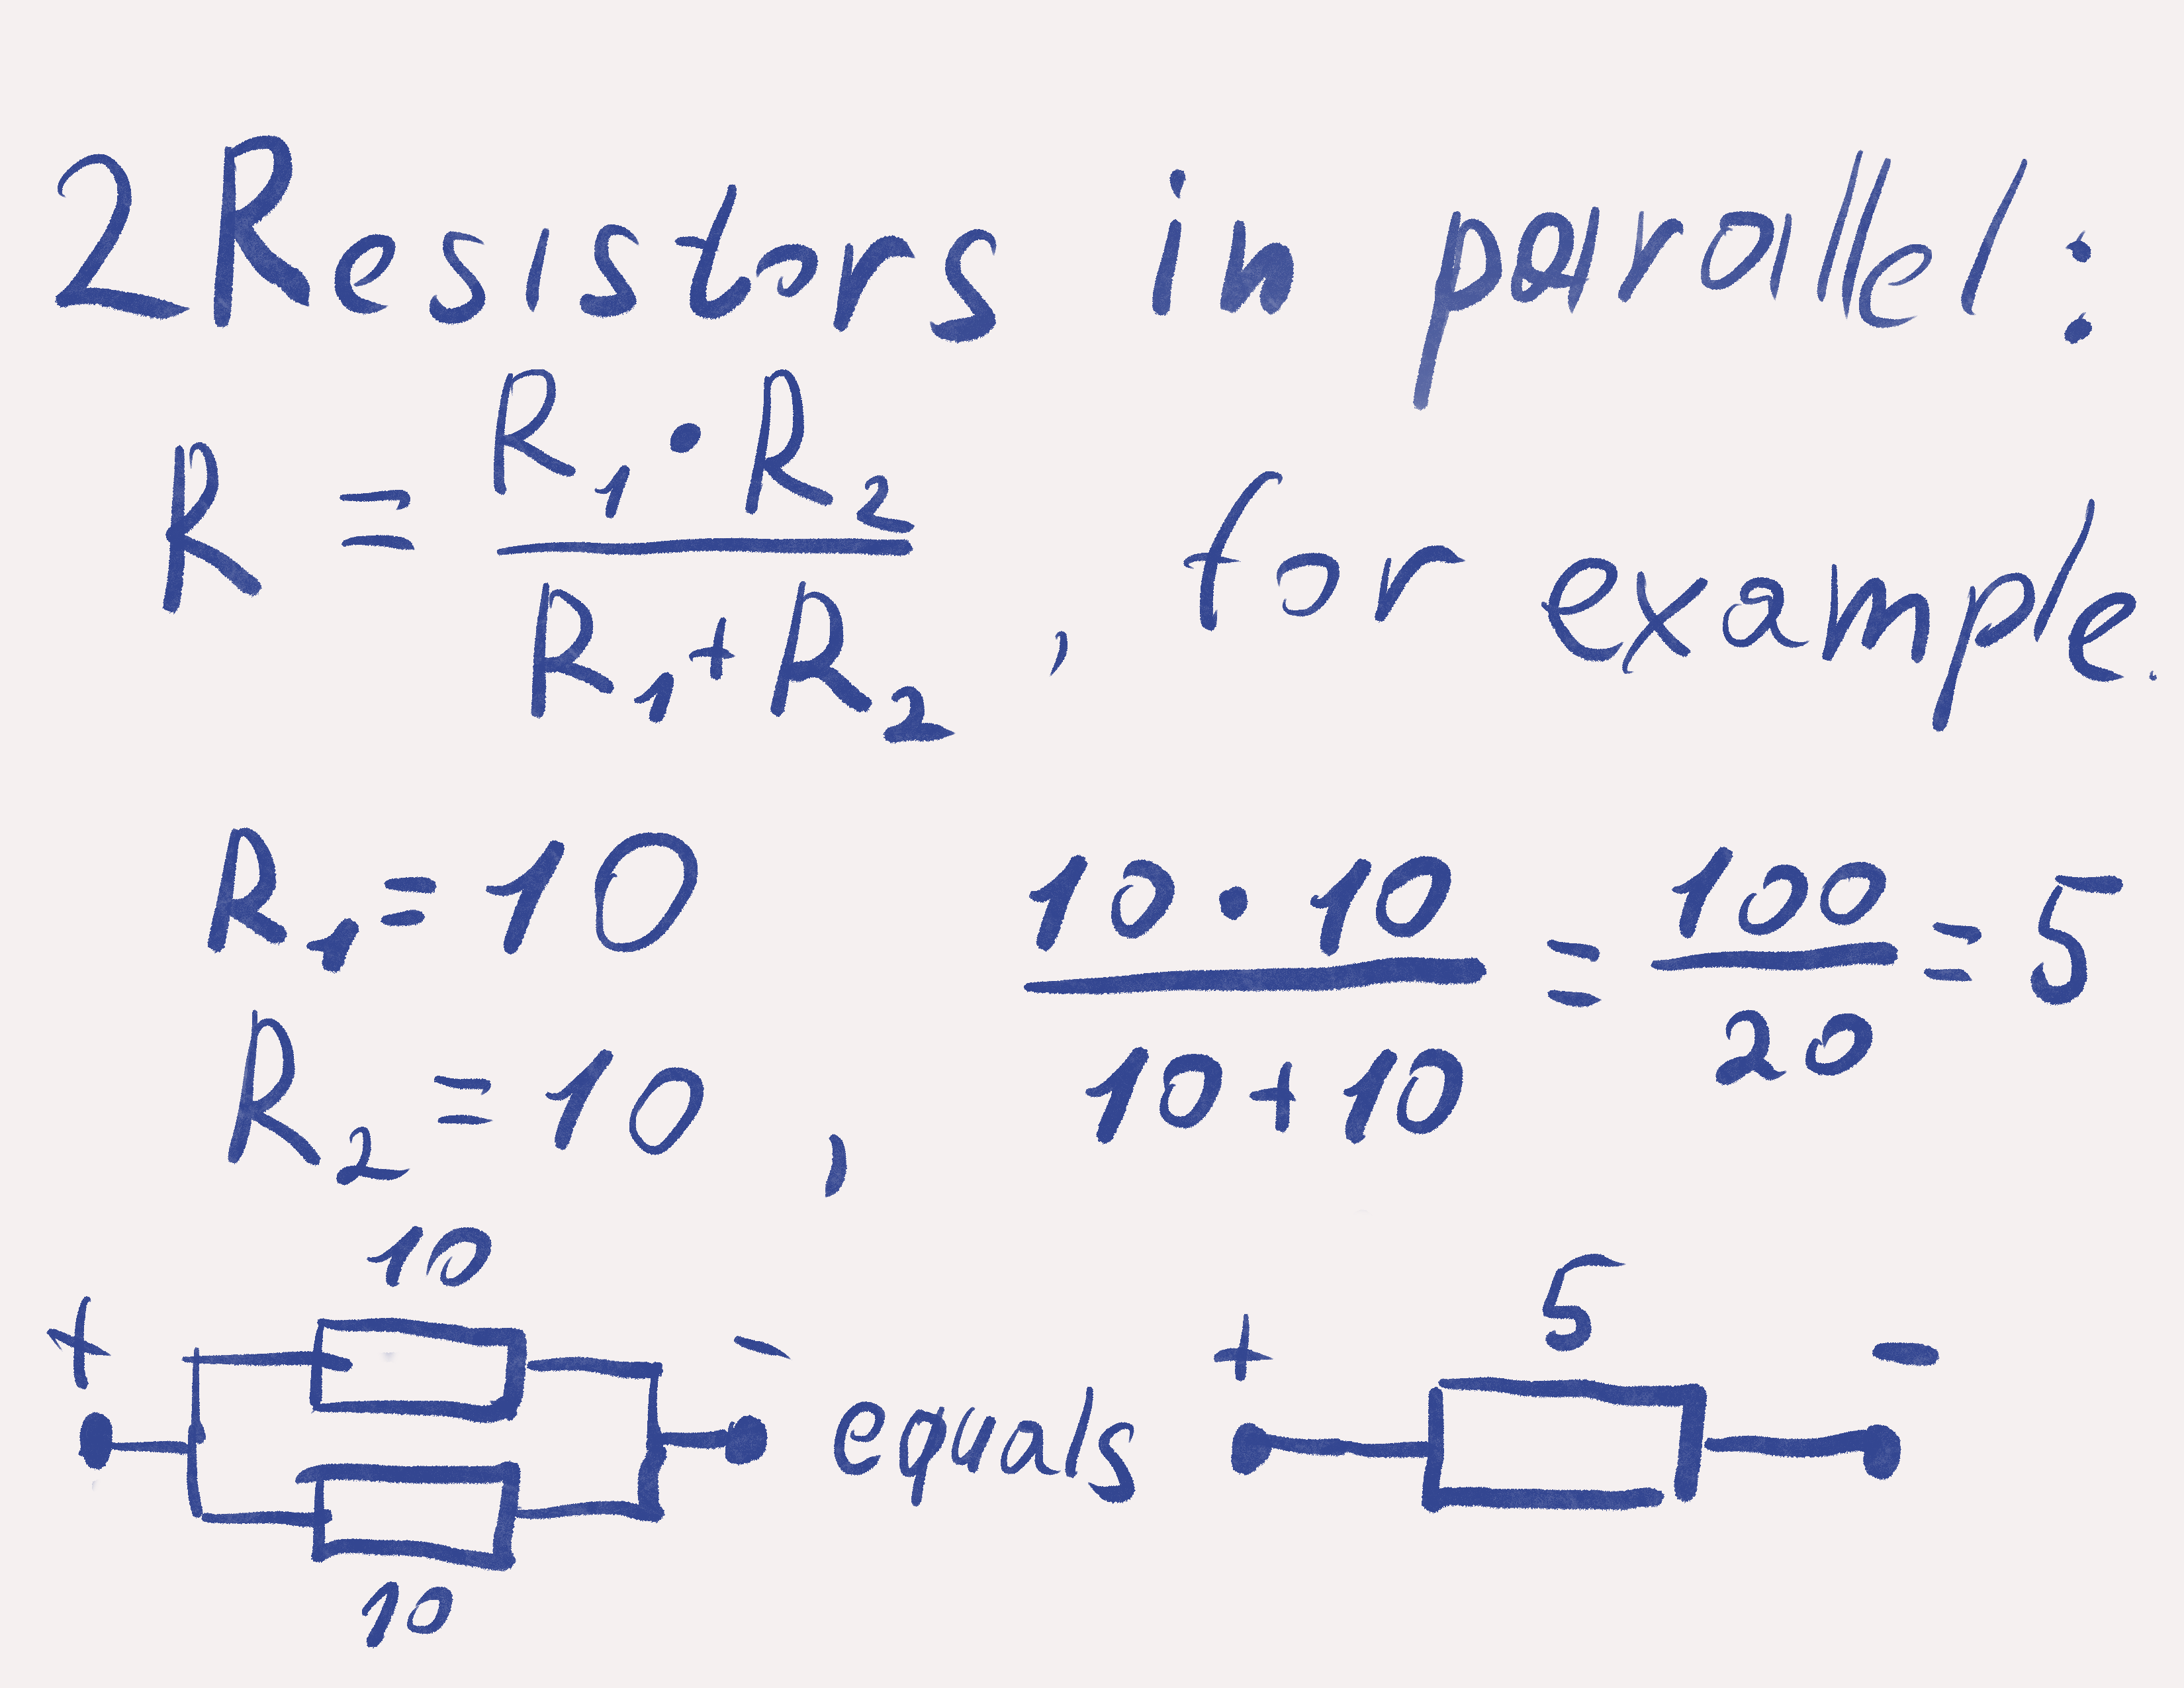 2 Resistors in parallel:
R = R₁ · R₂ / R₁ + R₂ , for example.
R₁ = 10
R₂ = 10 , 10 · 10 / 10 + 10 = 100 / 20 = 5
10
+ - equals + 5 -
10